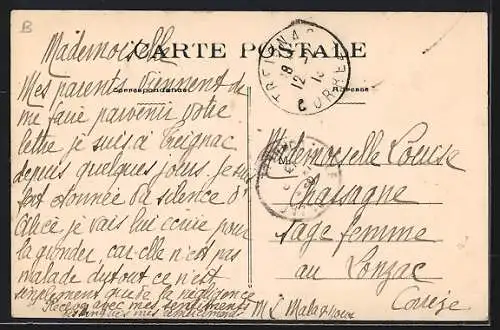 B
CARTE POSTALE
Correspondance
Adresse
TREIGNAC
CORRÈZE
Mademoiselle
Mes parents viennent de
me faire parvenir votre
lettre je suis à Treignac
depuis quelques jours. Je suis
fort étonnée du silence d'
Alice je vais lui écrire pour
la gronder, car elle n'est pas
malade du tout ce n'est
simplement que de la négligence
Recevez avec mes remerciements
mes
Mademoiselle Louise
Chassagne
sage femme
au Lonzac
Corrèze